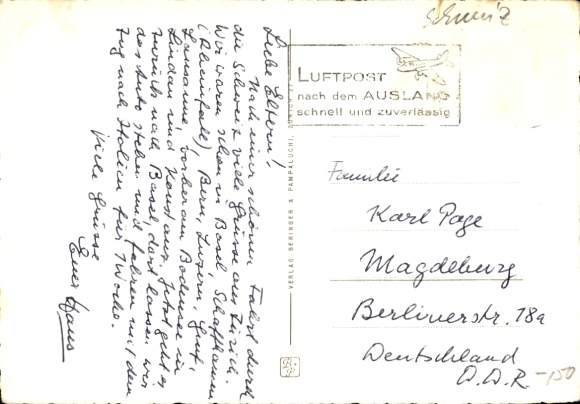 Schweiz
LUFTPOST
nach dem AUSLAND
schnell und zuverlässig
Liebe Eltern!
Nach einer schönen Fahrt durch
die Schweiz viele Grüsse aus Zürich.
Wir waren schon in Basel, Schaffhausen
(Rheinfall), Bern, Luzern, Genf,
Lausanne, vorher am Bodensee in
Lindau und Konstanz. Jetzt geht es
zurück nach Basel, dort lassen wir
das Auto stehen und fahren mit dem
Zug nach Italien für 1 Woche.
Viele Grüsse
Euer Hans
VERLAG BERINGER & PAMPALUCHI, ZÜRICH
Familie
Karl Page
Magdeburg
Berlinerstr. 18a
Deutschland
D.D.R.
-150